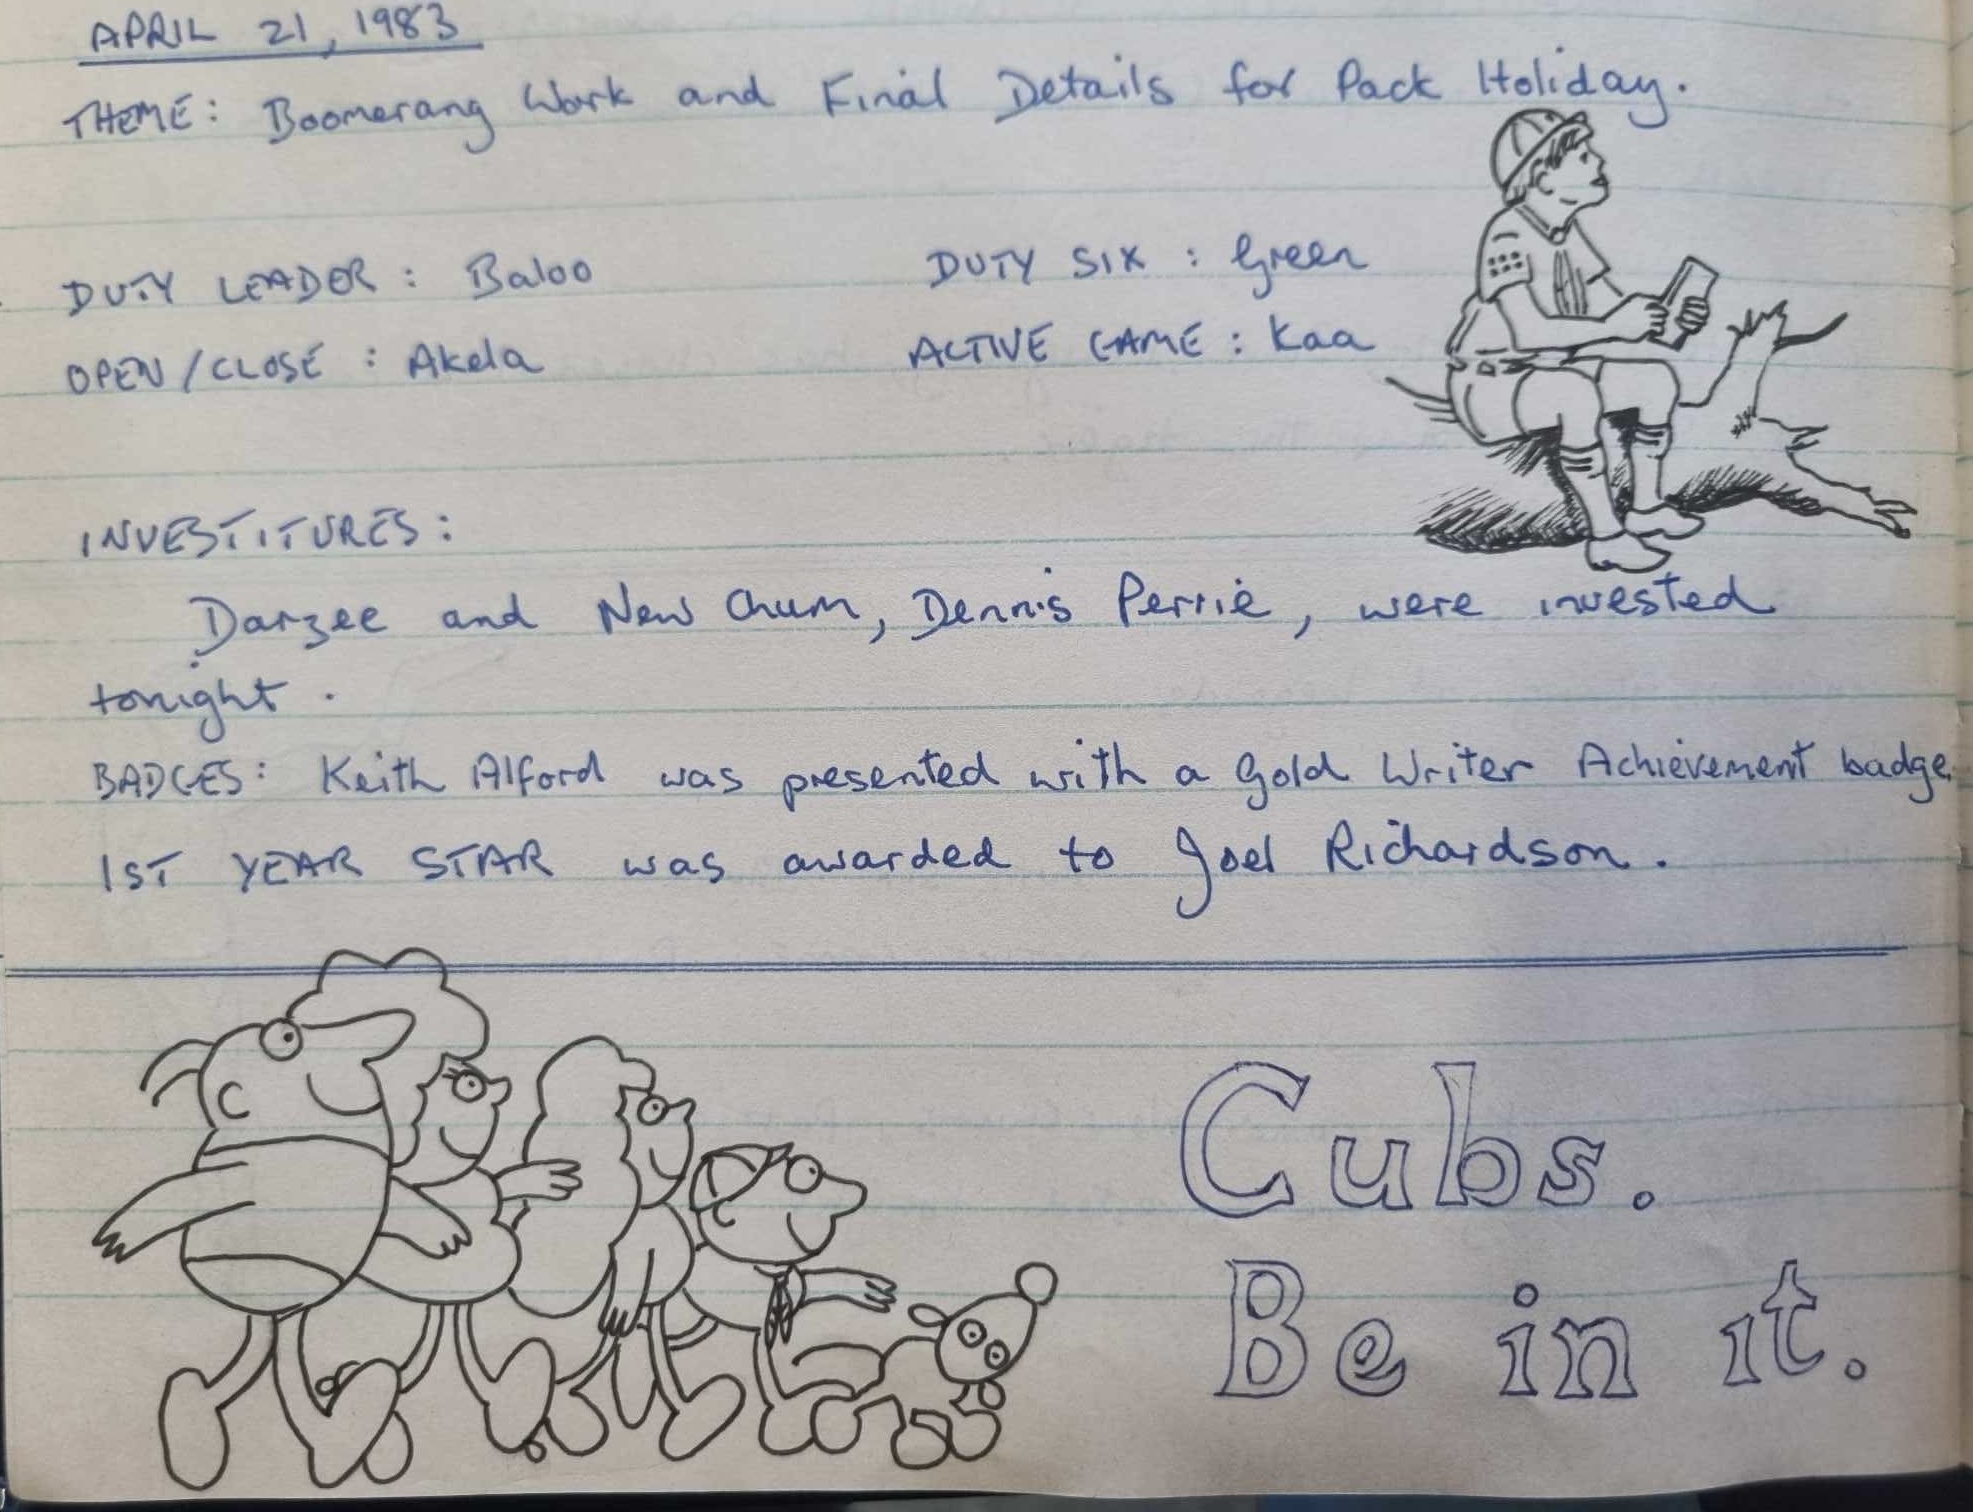 APRIL 21, 1983
THEME: Boomerang Work and Final Details for Pack Holiday.
DUTY LEADER: Baloo DUTY SIX: Green
OPEN/CLOSE: Akela ACTIVE GAME: Kaa
INVESTITURES:
Darzee and New Chum, Dennis Perrie, were invested
tonight.
BADGES: Keith Alford was presented with a Gold Writer Achievement badge.
1ST YEAR STAR was awarded to Joel Richardson.
Cubs.
Be in it.